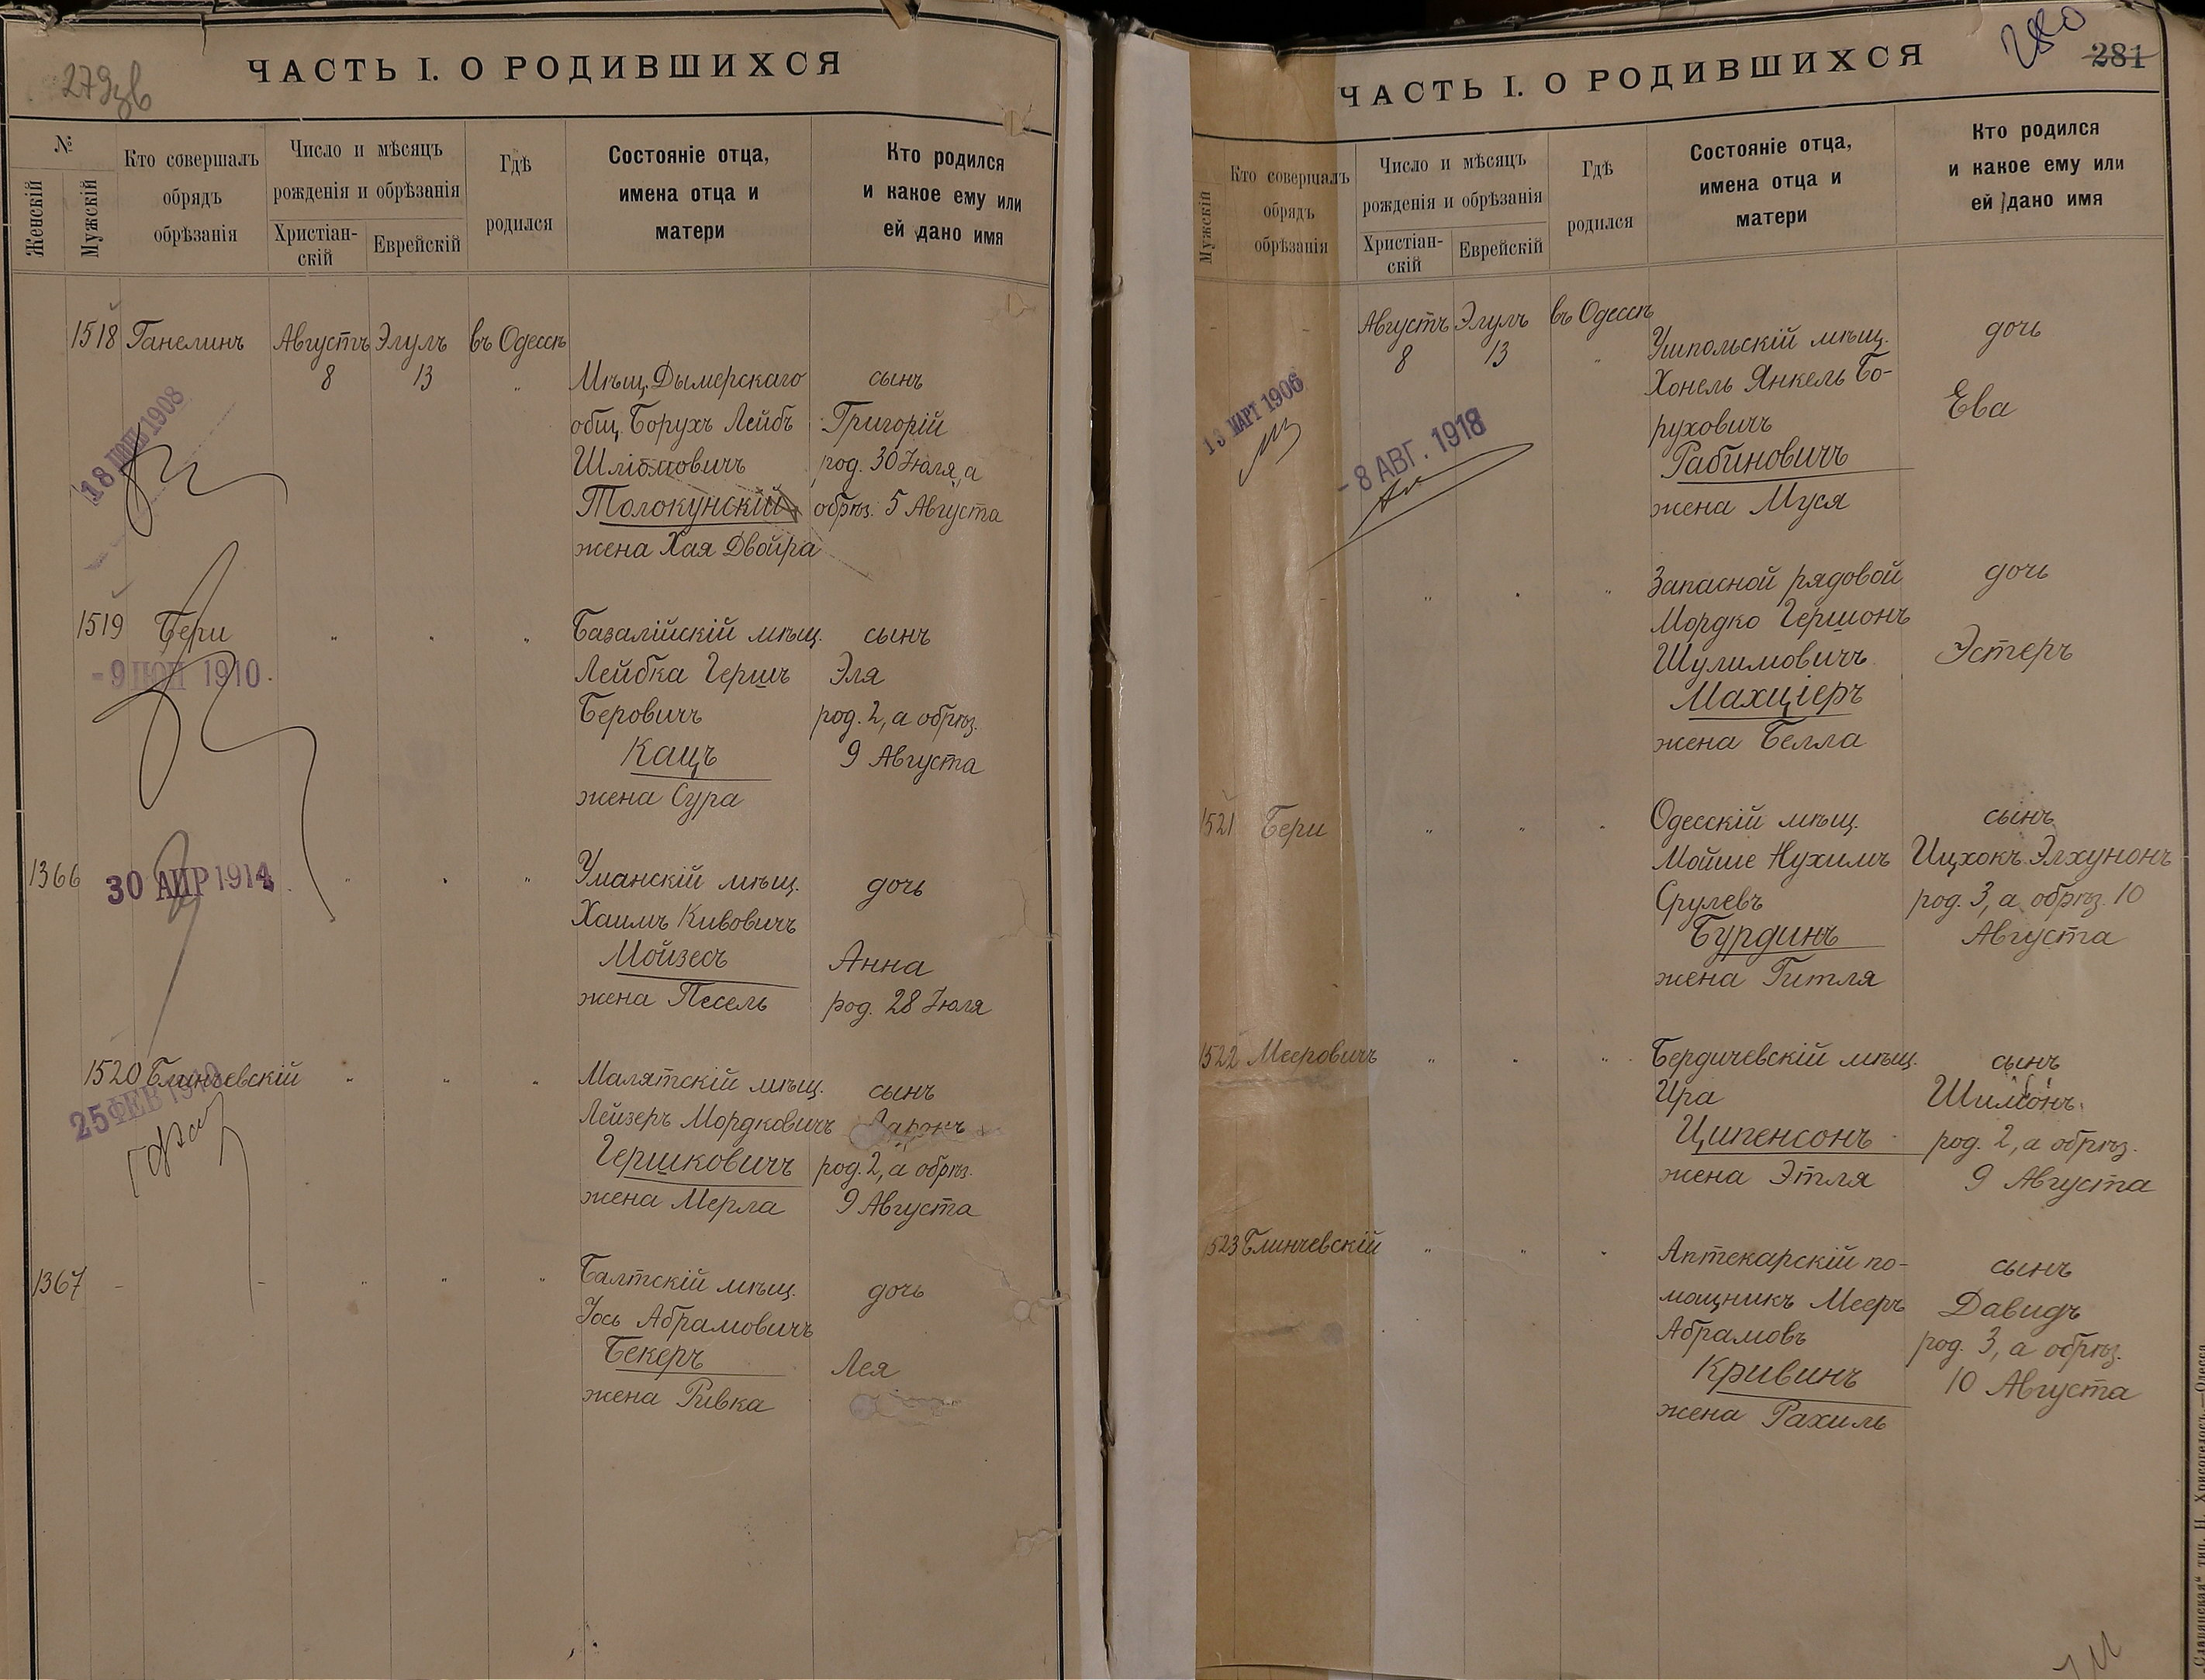 279 зв
ЧАСТЬ I. О РОДИВШИХСЯ
№
Женскій
Мужскій
Кто совершалъ
обрядъ
обрѣзанія
Число и мѣсяцъ
рожденія и обрѣзанія
Христіан-
скій
Еврейскій
Гдѣ
родился
Состояніе отца,
имена отца и
матери
Кто родился
и какое ему или
ей дано имя
1518 Ганелинъ Августъ Элулъ въ Одессѣ
8 13 " Мѣщ. Дымерскаго сынъ
общ. Борухъ Лейбъ Григорій
род. 30 Іюля, а
Толокунскій обрѣз. 5 Августа
жена Хая Двойра
18 1908
1519 Бери " " " Базалійскій мѣщ. сынъ
- 9 ІЮН 1910 Лейбка Гершъ Эля
Беровичъ род. 2, а обрѣз.
Кацъ 9 Августа
жена Сура
1366 30 АПР 1914 " " " Уманскій мѣщ. дочь
Хаимъ Кивовичъ
Мойзесъ Анна
жена Песель род. 28 Іюля
1520 Блинчевскій " " " Малятскій мѣщ. сынъ
25 ФЕВ Лейзеръ Мордковичъ Ааронъ
Гершковичъ род. 2, а обрѣз.
жена Мерла 9 Августа
1367 - - " " " Балтскій мѣщ. дочь
Іось Абрамовичъ
Бекеръ Лея
жена Ривка
280
281
ЧАСТЬ I. О РОДИВШИХСЯ
Мужскій
Кто совершалъ
обрядъ
обрѣзанія
Число и мѣсяцъ
рожденія и обрѣзанія
Христіан-
скій
Еврейскій
Гдѣ
родился
Состояніе отца,
имена отца и
матери
Кто родился
и какое ему или
ей дано имя
- - Августъ Элулъ въ Одессѣ Ушпольскій мѣщ. дочь
8 13 " Хонель Янкель Бо-
руховичъ Ева
Рабиновичъ
жена Муся
13 МАРТ 1906
- 8 АВГ. 1918
- - " " " Запасной рядовой дочь
Мордко Гершонъ
Шулимовичъ Эстеръ
Махціеръ
жена Белла
1521 Бери " " " Одесскій мѣщ. сынъ
Мойше Нухимъ Ицхокъ Элхунонъ
Срулевъ род. 3, а обрѣз. 10
Бурдинъ Августа
жена Гитля
1522 Мееровичъ " " " Бердичевскій мѣщ. сынъ
Ира Шимонъ
Ципенсонъ род. 2, а обрѣз.
жена Этля 9 Августа
1523 Блинчевскій " " " Аптекарскій по- сынъ
мощникъ Мееръ Давидъ
Абрамовъ род. 3, а обрѣз.
Кривинъ 10 Августа
жена Рахиль